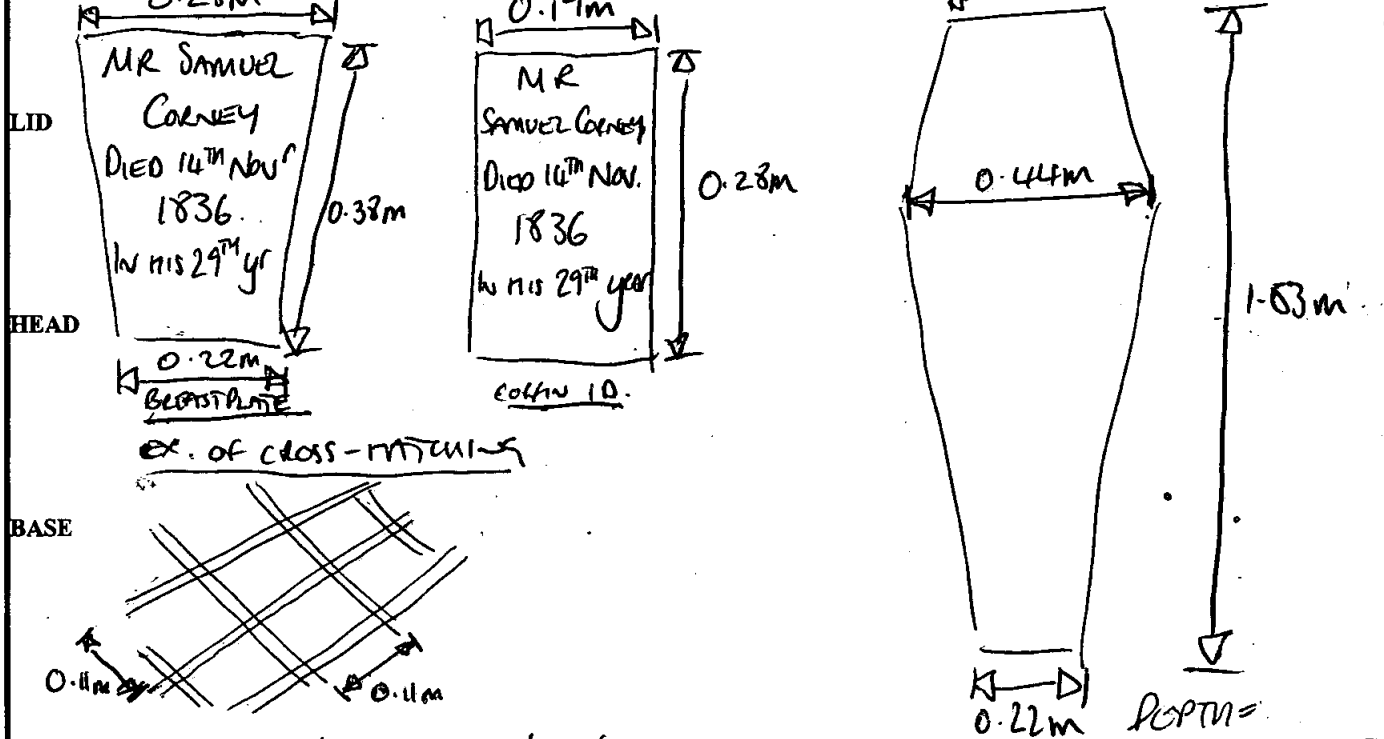 0.19m
MR SAMUEL
CORNEY
DIED 14TH Novr
1836.
IN HIS 29TH yr
0.38m
0.22m
BREASTPLATE
MR
SAMUEL CORNEY
DIED 14TH Nov.
1836
IN HIS 29TH year
0.28m
COFFIN ID.
LID
HEAD
BASE
EX. OF CROSS-MATCHING
0.11m
0.11m
0.44m
0.22m
DEPTH=